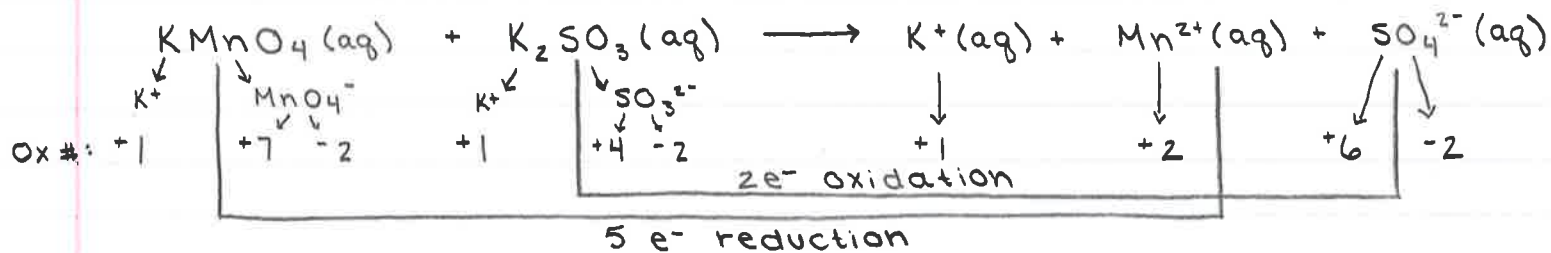 KMnO₄ (aq) + K₂SO₃ (aq) ⟶ K⁺ (aq) + Mn²⁺ (aq) + SO₄²⁻ (aq)
K⁺ MnO₄⁻ K⁺ SO₃²⁻
Ox #: +1 +7 -2 +1 +4 -2 +1 +2 +6 -2
2e⁻ oxidation
5 e⁻ reduction